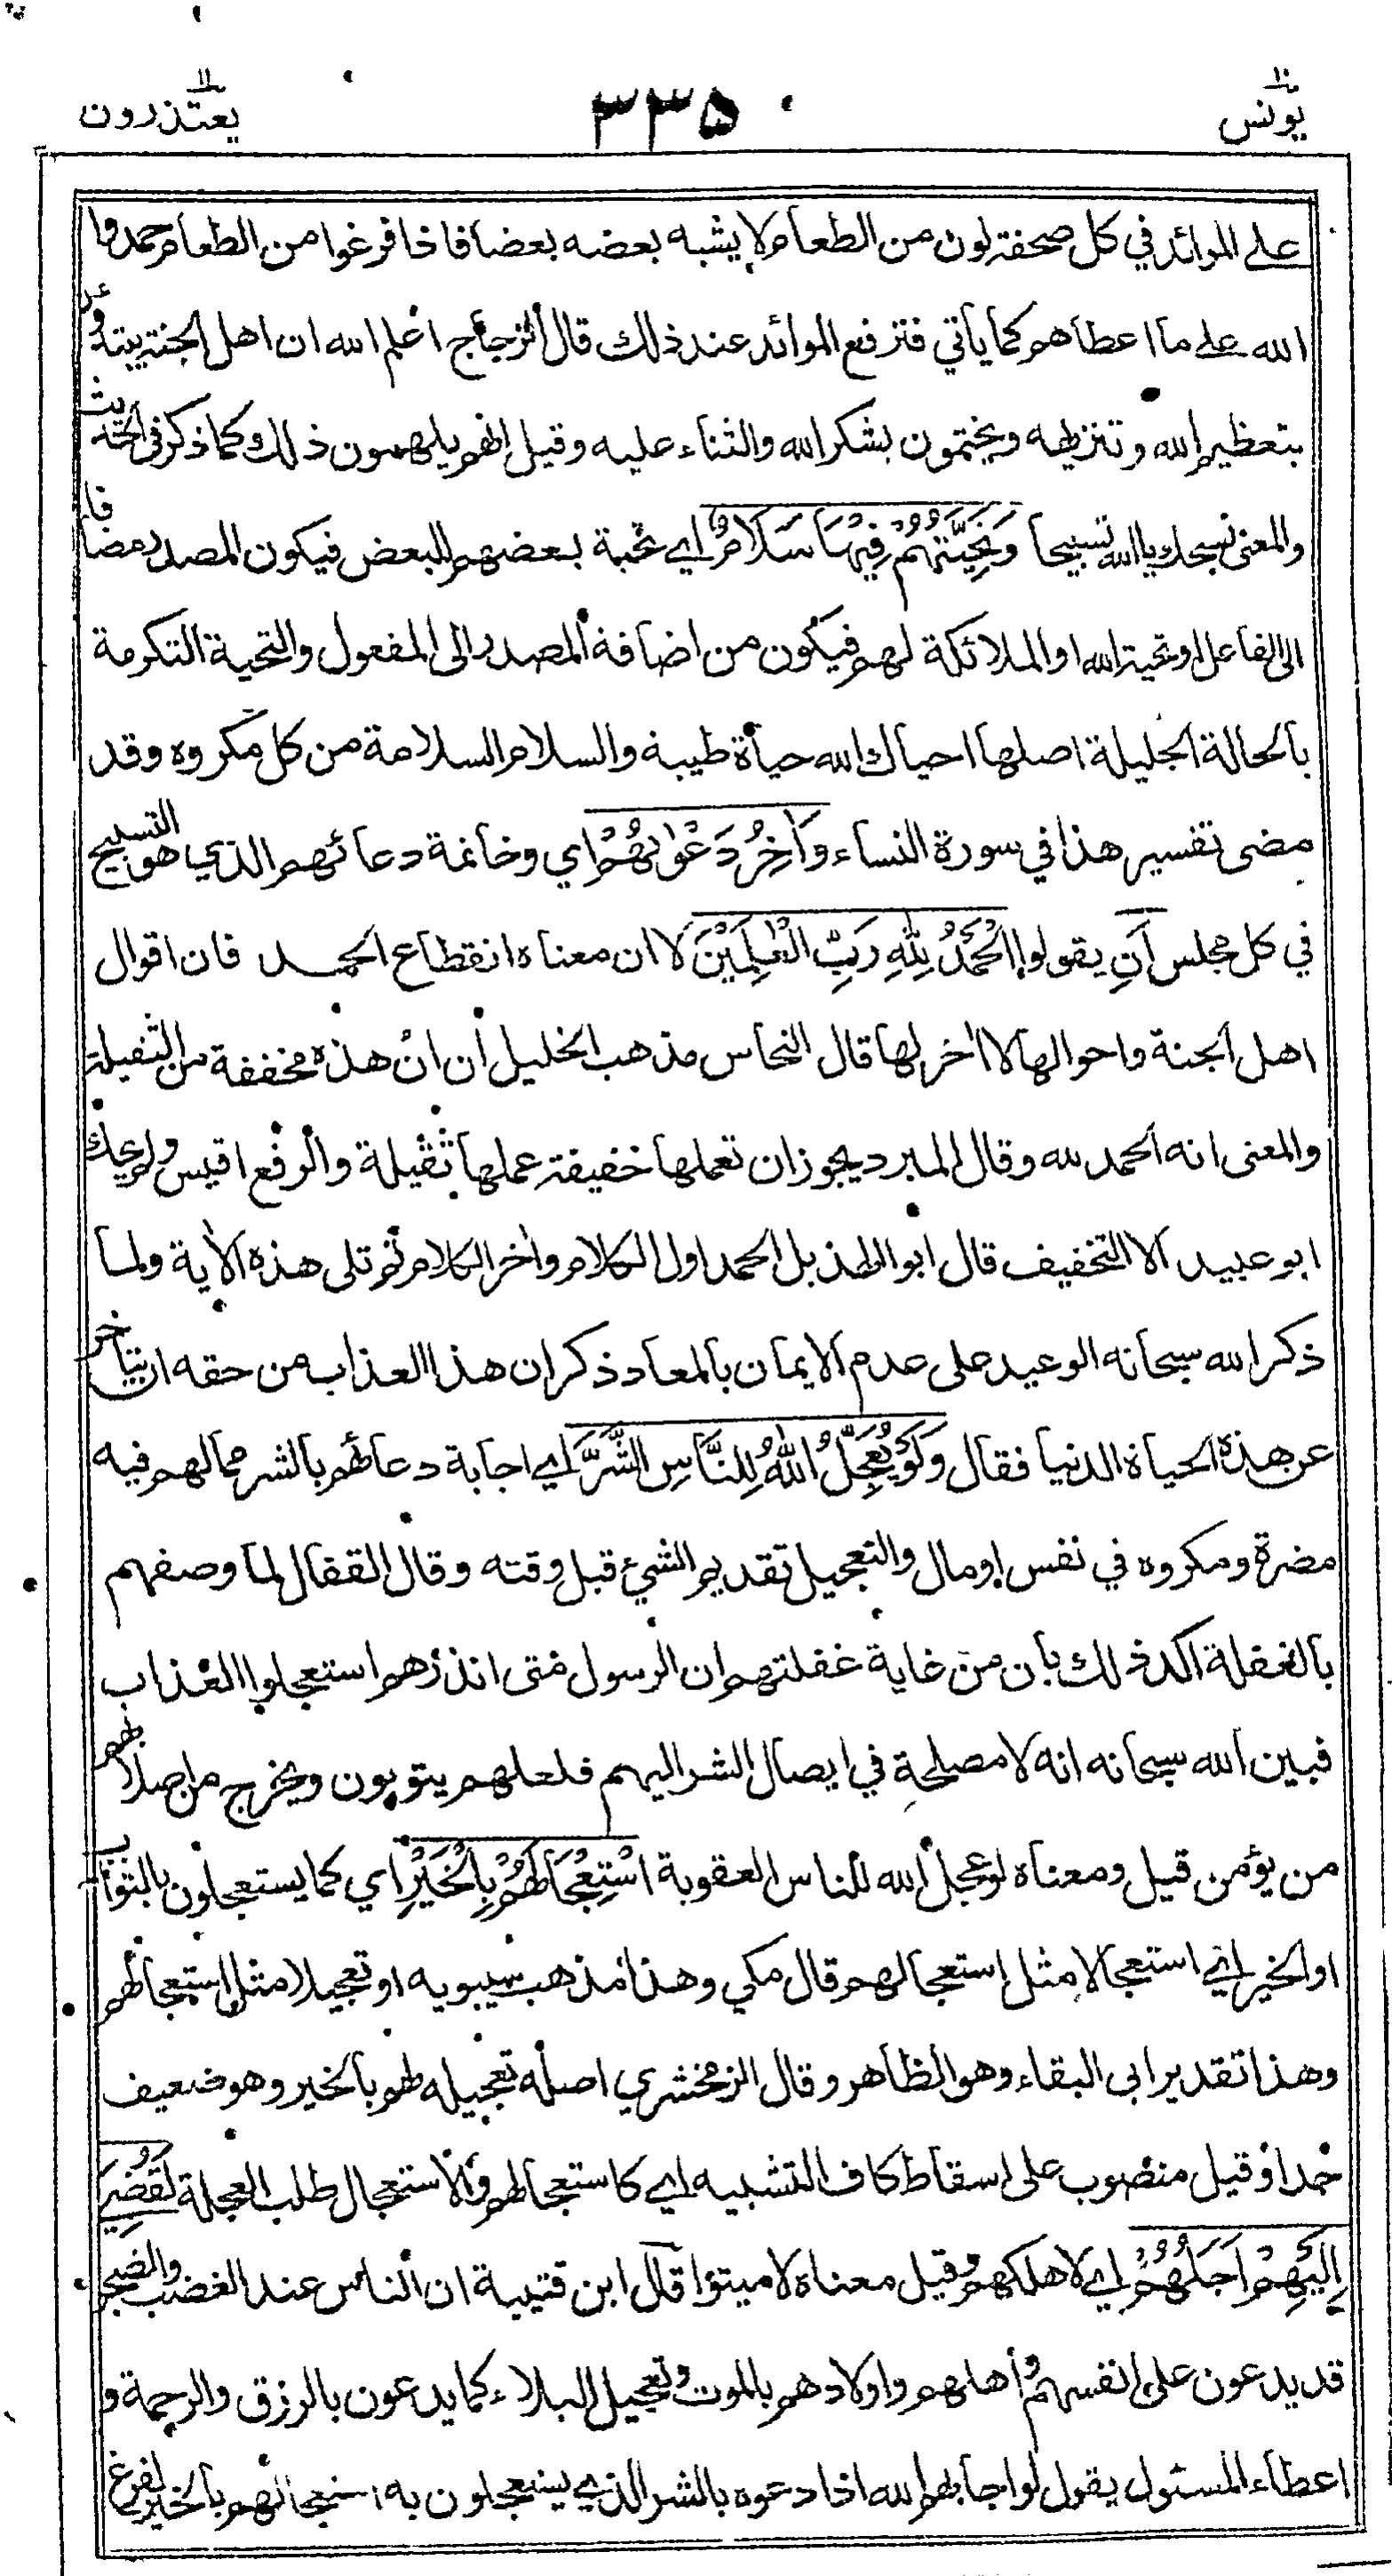 يونس ١٠
٣٣٥
يعتذرون ١١
على الموائد في كل صحفة لون من الطعام لا يشبه بعضه بعضا فاذا فرغوا من الطعام حمدوا
الله على ما اعطاهم كما يأتي فترفع الموائد عند ذلك قال الزجاج اعلم الله ان اهل الجنة يبتدؤن
بتعظيم الله وتنزيهه ويختمون بشكر الله والثناء عليه وقيل انهم يلهمون ذلك كما ذكر في الحديث
والمعنى نسبحك يا الله تسبيحا وَتَحِيَّتُهُمْ فِيْهَا سَلَامٌ اي تحية بعضهم للبعض فيكون المصدر مضافا
الى الفاعل او تحية الله او الملائكة لهم فيكون من اضافة المصدر الى المفعول والتحية التكرمة
بالحالة الجليلة اصلها احياك الله حياة طيبة والسلام السلامة من كل مكروه وقد
مضى تفسير هذا في سورة النساء وَاٰخِرُ دَعْوٰىهُمْ اي وخاتمة دعائهم الذي هو التسبيح
في كل مجلس اَنِ يقولوا الْحَمْدُ لِلّٰهِ رَبِّ الْعٰلَمِيْنَ لا ان معناه انقطاع الحمد فان اقوال
اهل الجنة واحوالها لا اخر لها قال النحاس مذهب الخليل ان ان هذه مخففة من الثقيلة
والمعنى انه الحمد لله وقال المبرد يجوز ان تعملها خفيفة عملها ثقيلة والرفع اقيس ولم يحك
ابو عبيد الا التخفيف قال ابو الهذيل الحمد اول الكلام واخر الكلام ثم تلى هذه الآية ولما
ذكر الله سبحانه الوعيد على عدم الايمان بالمعاد ذكر ان هذا العذاب من حقه ان يتأخر
عن هذه الحياة الدنيا فقال وَلَوْ يُعَجِّلُ اللّٰهُ لِلنَّاسِ الشَّرَّ اي اجابة دعائهم بالشر مما لهم فيه
مضرة ومكروه في نفس او مال والتعجيل تقديم الشيء قبل وقته وقال القفال لما وصفهم
بالغفلة اكد ذلك بأن من غاية غفلتهم ان الرسول متى انذرهم استعجلوا العذاب
فبين الله سبحانه انه لا مصلحة في ايصال الشر اليهم فلعلهم يتوبون ويخرج من اصلابهم
من يؤمن قيل ومعناه لو عجل الله للناس العقوبة اسْتِعْجَالَهُمْ بِالْخَيْرِ اي كما يستعجلون بالثواب
او الخير اي استعجالا مثل استعجالهم قال مكي وهذا مذهب سيبويه او تعجيلا مثل استعجالهم
وهذا تقدير ابي البقاء وهو الظاهر وقال الزمخشري اصله تعجيله لهم بالخير وهو ضعيف
جدا وقيل منصوب على اسقاط كاف التشبيه اي كاستعجالهم والاستعجال طلب العجلة لَقُضِيَ
اِلَيْهِمْ اَجَلُهُمْ اي لاهلكهم وقيل معناه لاميتوا قال ابن قتيبة ان الناس عند الغضب والضجر
قد يدعون على انفسهم واهلهم واولادهم بالموت وتعجيل البلاء كما يدعون بالرزق والرحمة و
اعطاء المسئول يقول لو اجابهم الله اذا دعوه بالشر الذي يستعجلون به استعجالهم بالخير لفرغ